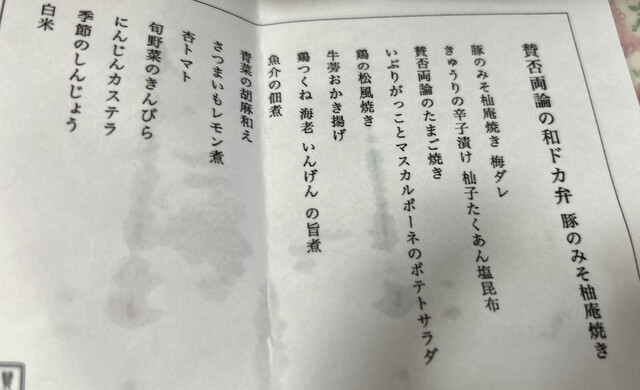 賛否両論の和ドカ弁 豚のみそ柚庵焼き
豚のみそ柚庵焼き 梅ダレ
きゅうりの辛子漬け 柚子たくあん塩昆布
賛否両論のたまご焼き
いぶりがっことマスカルポーネのポテトサラダ
鶏の松風焼き
牛蒡おかき揚げ
鶏つくね 海老 いんげん の旨煮
魚介の佃煮
青菜の胡麻和え
さつまいもレモン煮
杏トマト
旬野菜のきんぴら
にんじんカステラ
季節のしんじょう
白米